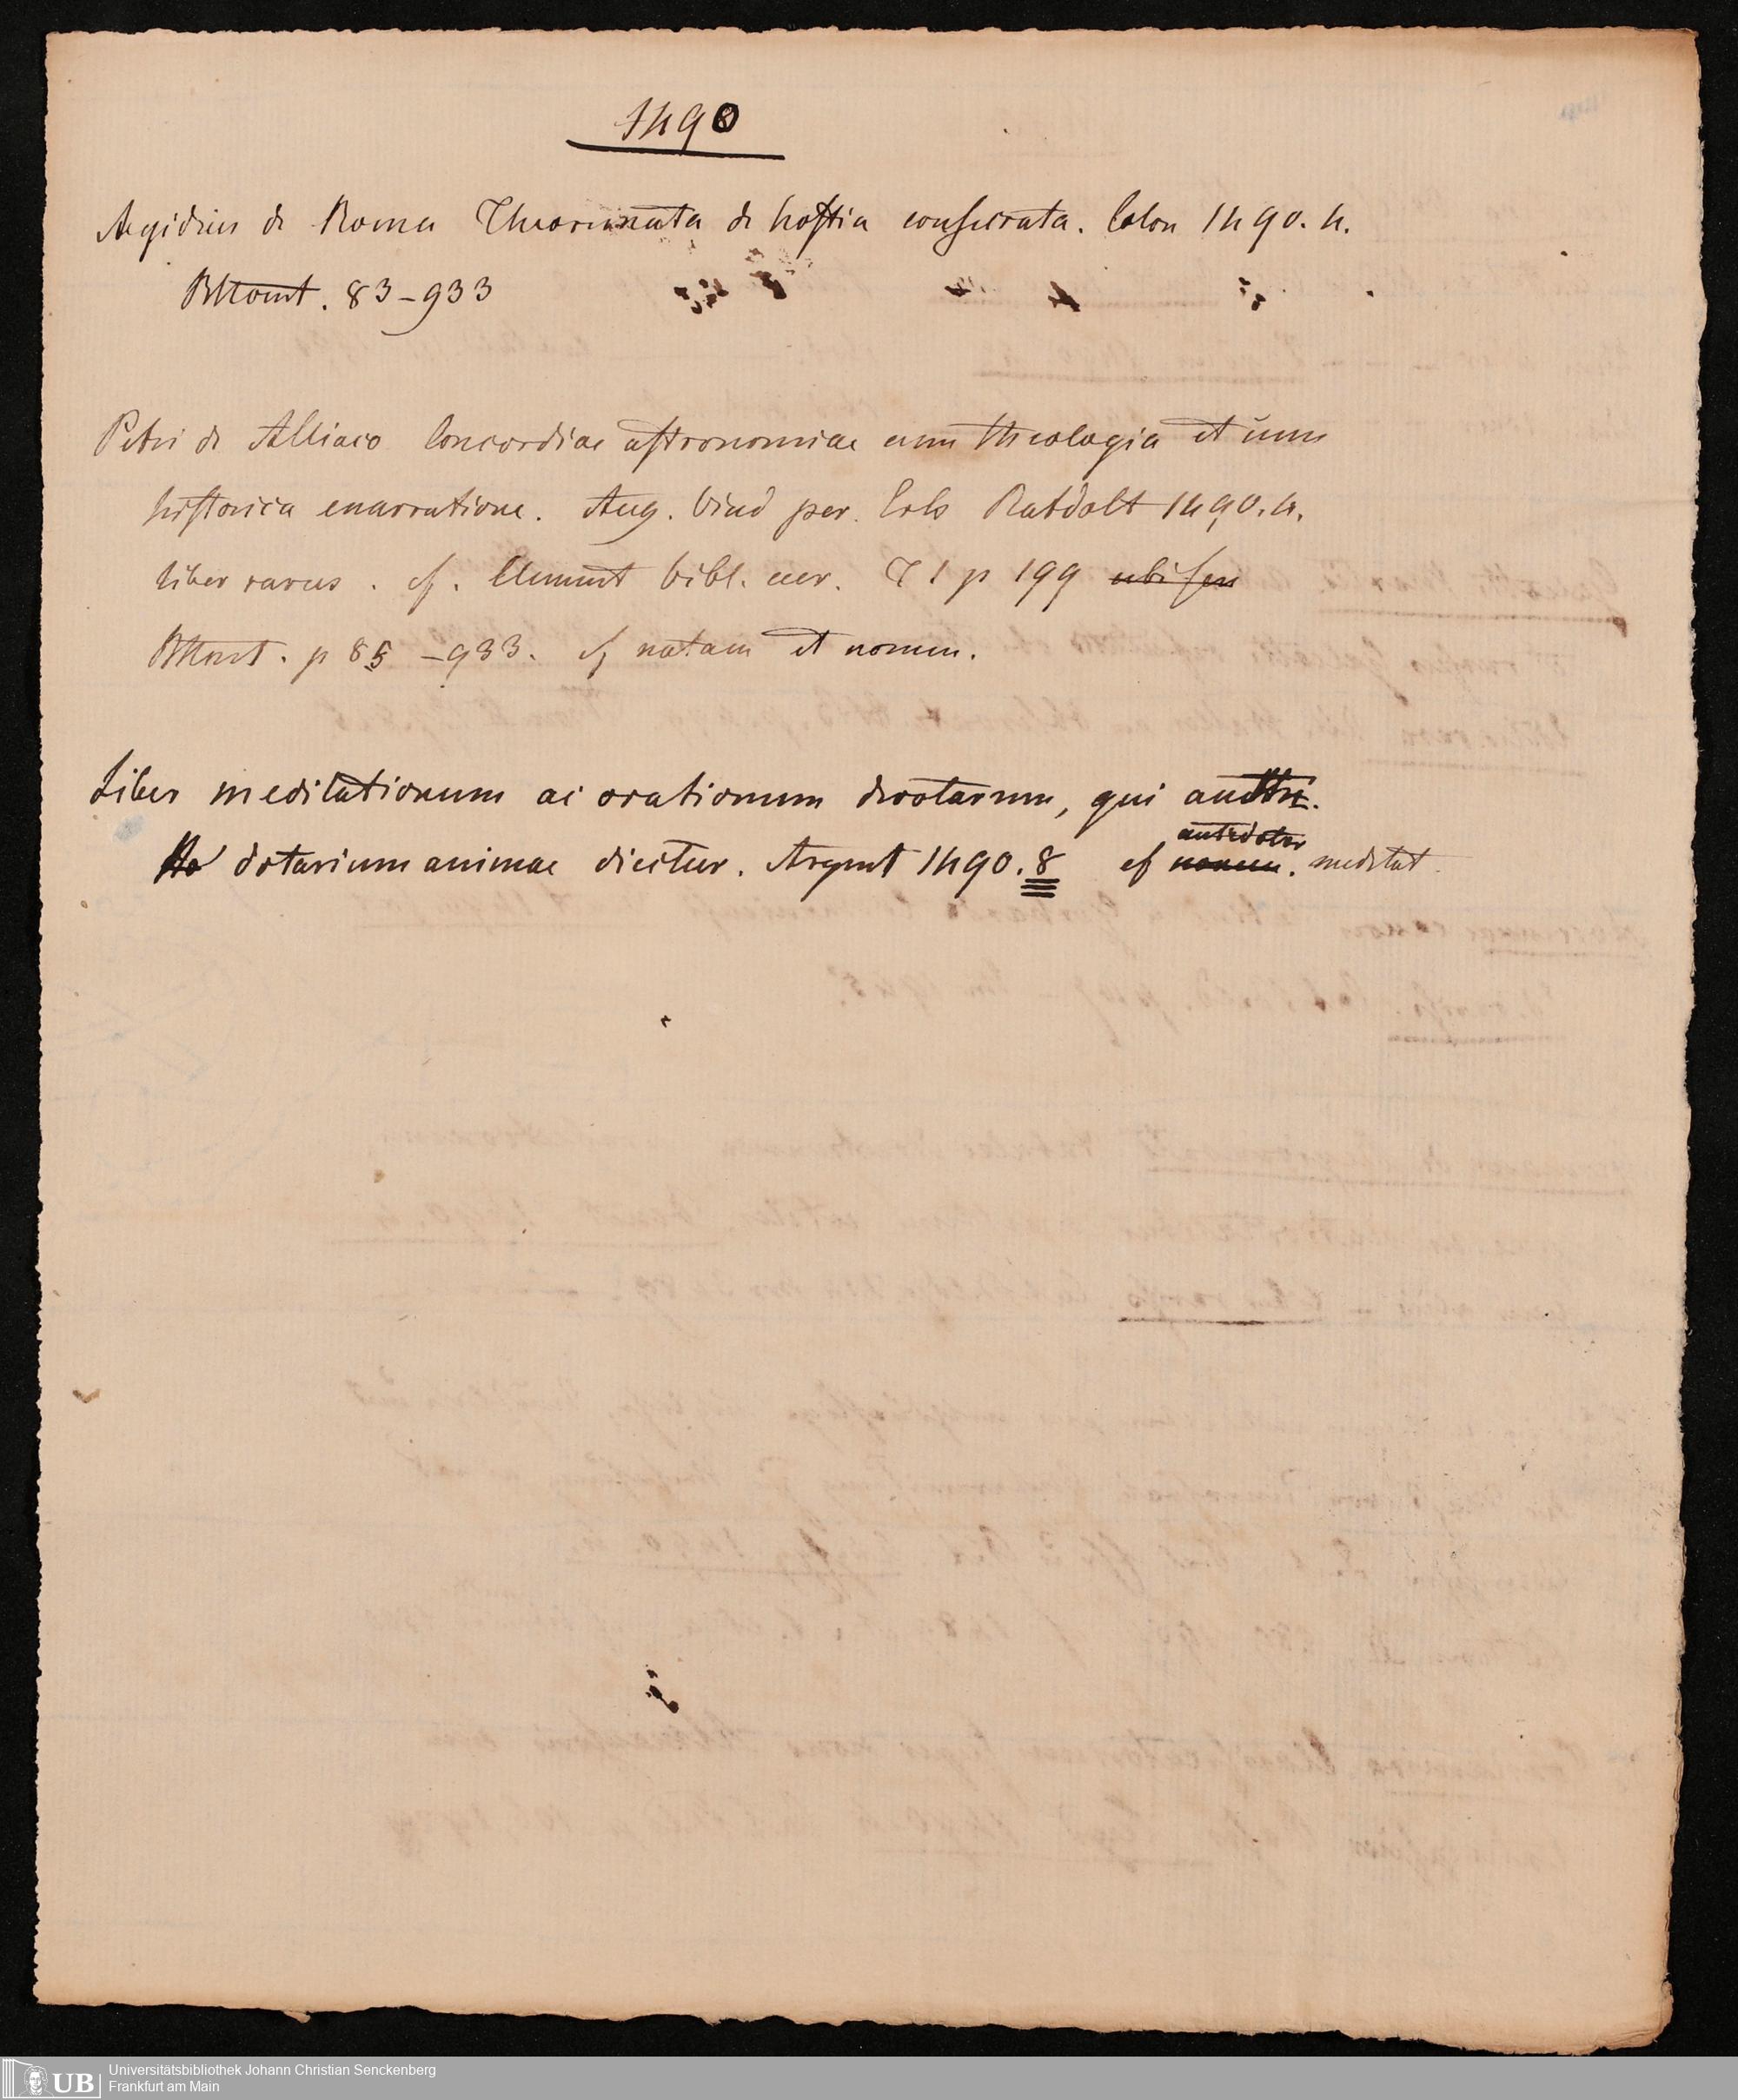 1490
Aegidius de Roma Theoremata de hostia consecrata. Colon 1490. 4.
83-933
Petri de Alliaco Concordiae astronomiae cum theologia et cum
historica enarratione. Aug. Vind per. Erh Ratdolt 1490. 4.
liber rarus. cf. Clement bibl. cur. T 1 p 199 ubi seu
p 85 -933. cf notam et nomen.
Liber meditationum ac orationum devotarum, qui
dotarium animae dicitur. Argent 1490. 8 cf nomen. antidotar meditat.
Universitätsbibliothek Johann Christian Senckenberg
Frankfurt am Main
UB